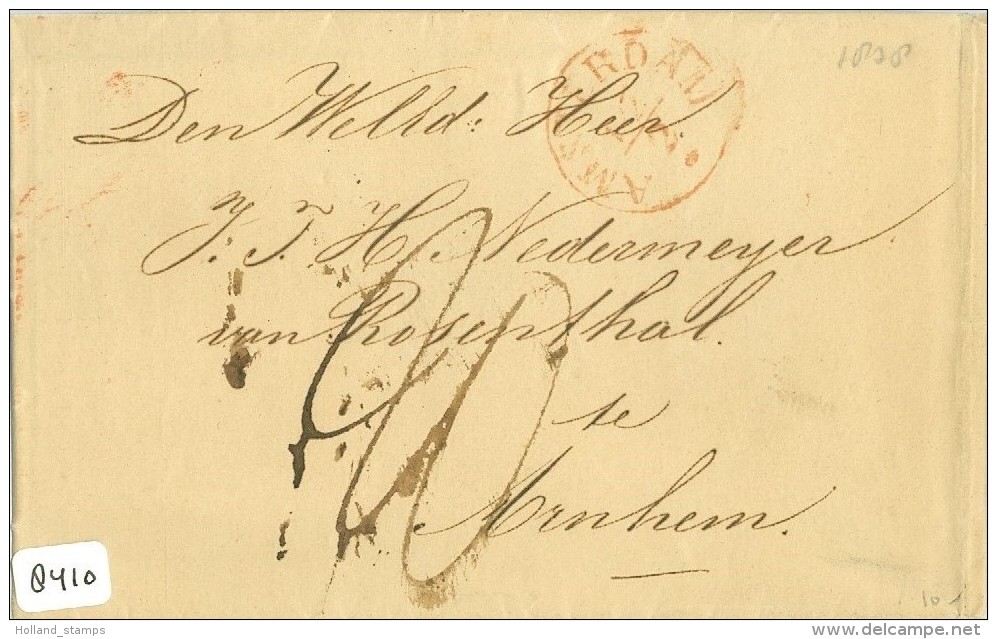 1838
AMSTERDAM
Den Welld: Heer.
J. T. H. Nedermeyer
van Rosenthal.
te
Arnhem.
20
8410
10
Holland_stamps
www.delcampe.net